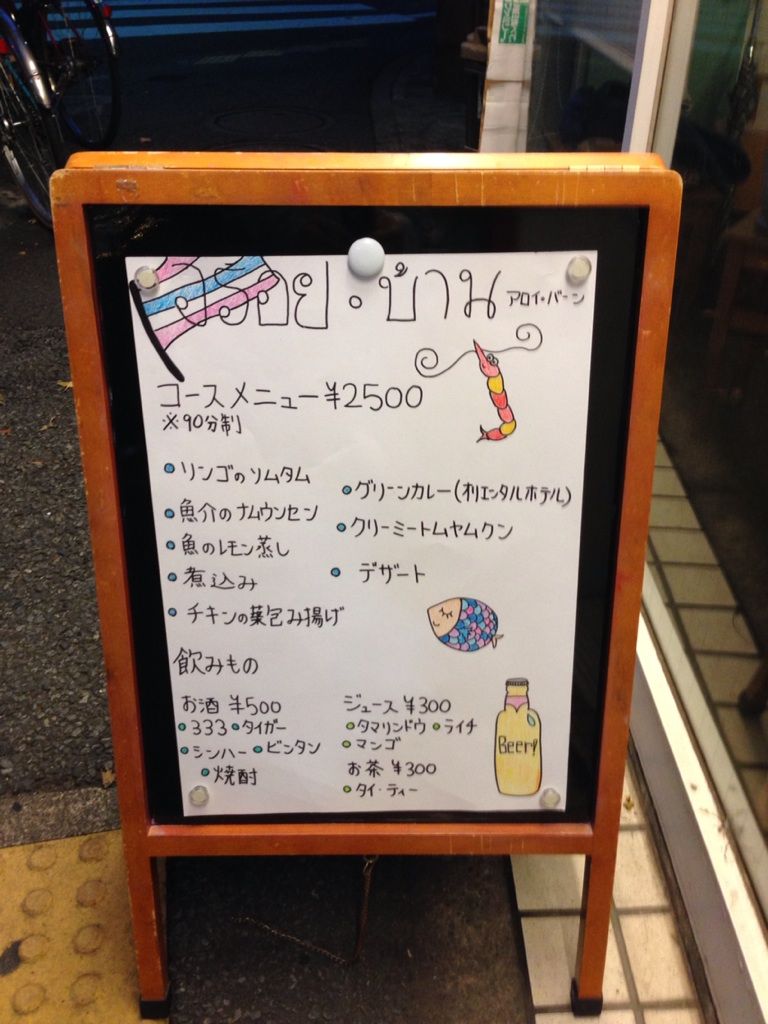 อร่อย・บ้าน アロイ・バーン
コースメニュー ¥2500
※90分制
・リンゴのソムタム
・魚介のナムウンセン
・魚のレモン蒸し
・煮込み
・チキンの葉包み揚げ
・グリーンカレー(オリエンタルホテル)
・クリーミートムヤムクン
・デザート
飲みもの
お酒 ¥500
・333 ・タイガー
・シンハー ・ビンタン
・焼酎
ジュース ¥300
・タマリンドウ ・ライチ
・マンゴ
お茶 ¥300
・タイ・ティー
Beer!